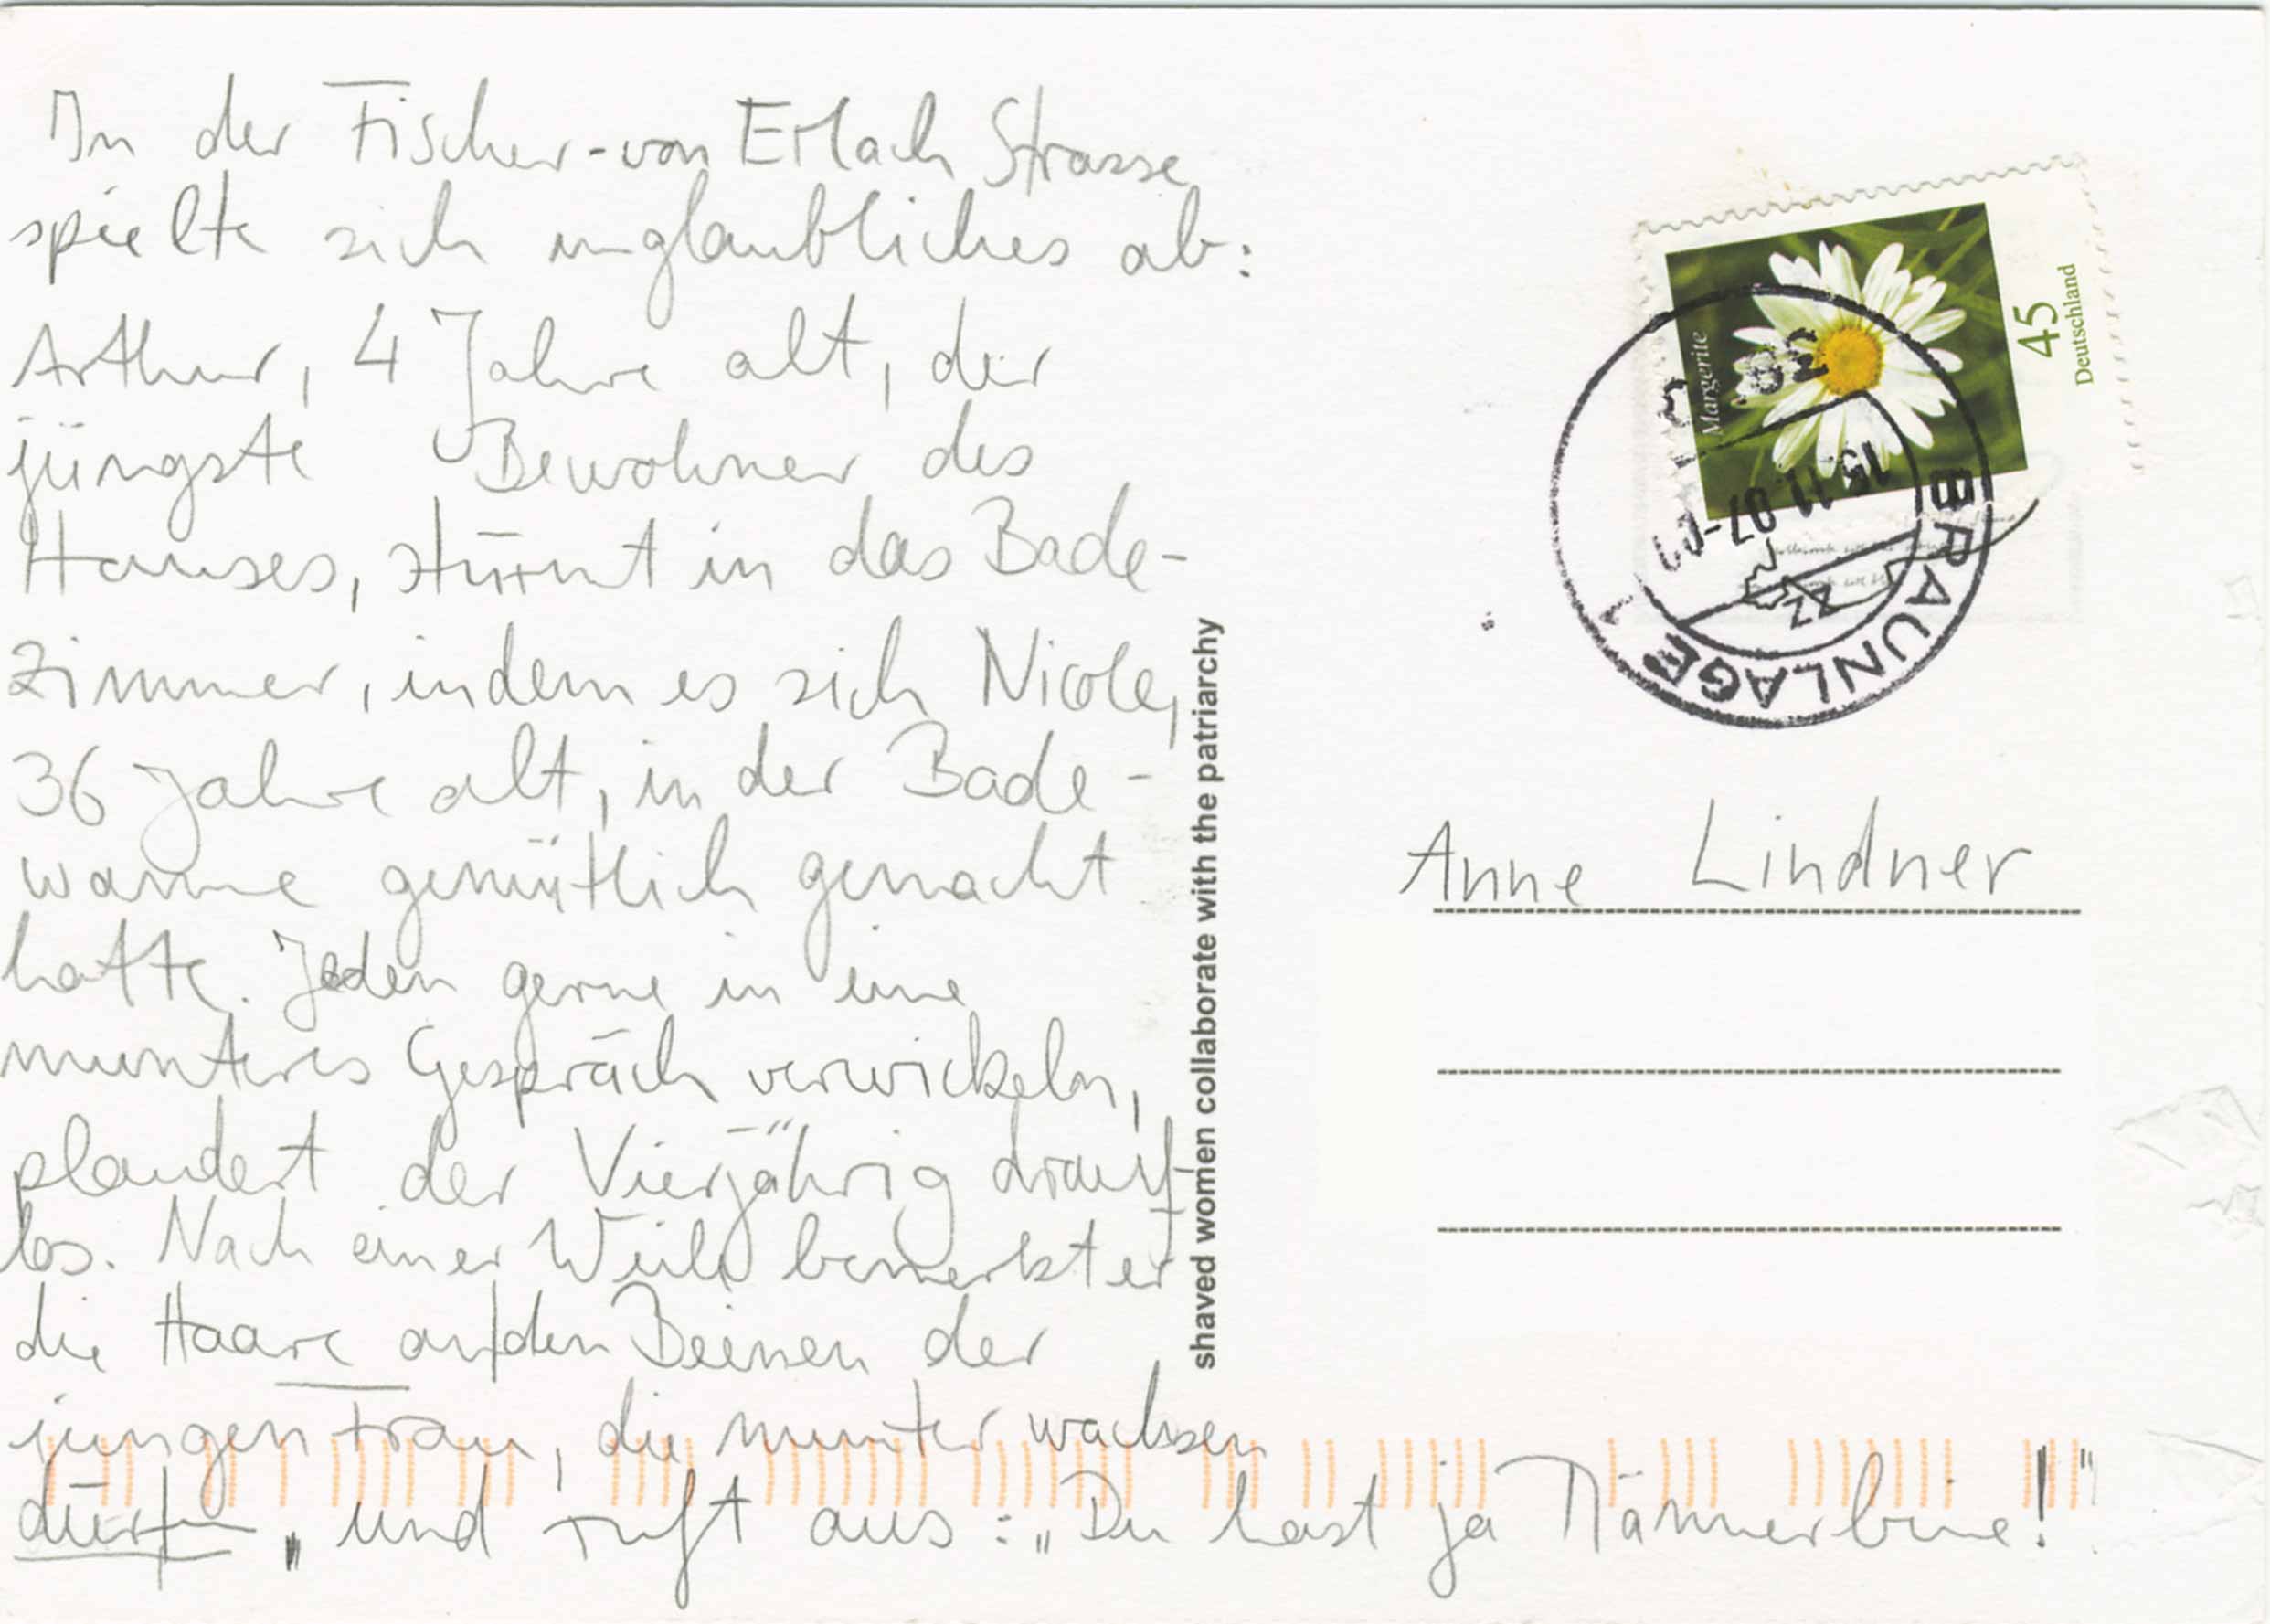 In der Fischer-von Erlach Strasse
spielte sich unglaubliches ab:
Arthur, 4 Jahre alt, der
jüngste Bewohner des
Hauses, stürmt in das Bade-
zimmer, indem es sich Nicole,
36 Jahre alt, in der Bade-
wanne gemütlich gemacht
hatte. Jeden gerne in eine
munteres Gespräch verwickeln,
plaudert der Vierjährig drauf
los. Nach einer Weile bemerkt er
die Haare auf den Beinen der
jungen Frau, die munter wachsen
dürfen, und ruft aus: „Du hast ja Männerbeine!"
shaved women collaborate with the patriarchy
Margerite
45
Deutschland
BRAUNLAGE 1
15.11.07
zz
Anne Lindner